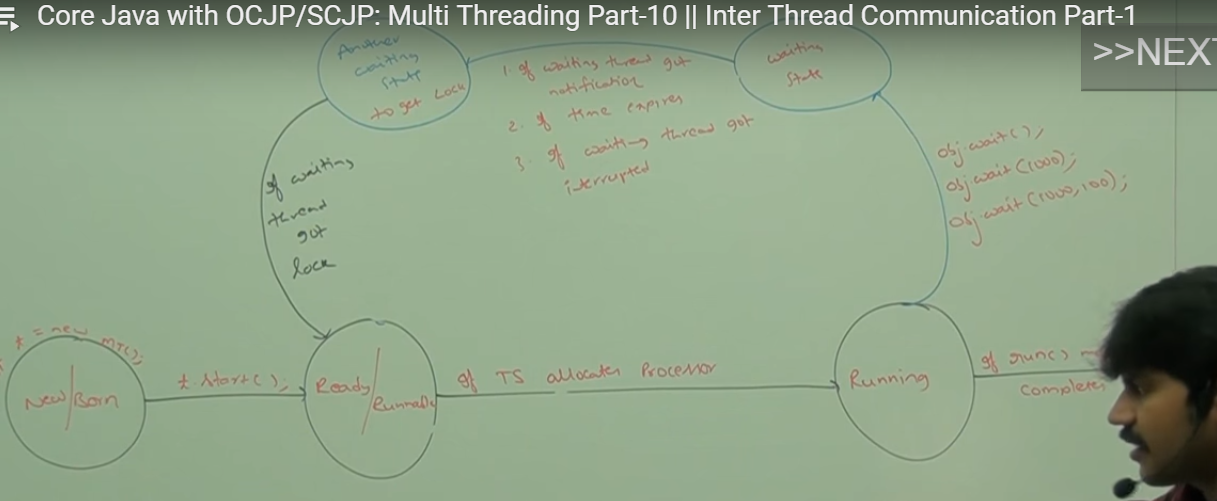 Core Java with OCJP/SCJP: Multi Threading Part-10 || Inter Thread Communication Part-1
>>NEXT
Another
waiting
State
to get Lock
1. If waiting thread got
notification
2. If time expires
3. If waiting thread got
interrupted
waiting
State
obj.wait();
obj.wait(1000);
obj.wait(1000,100);
If waiting
thread
got
lock
t = new MT();
New/Born
t.start();
Ready/
Runnable
If TS allocates Processor
Running
If run()
Completes